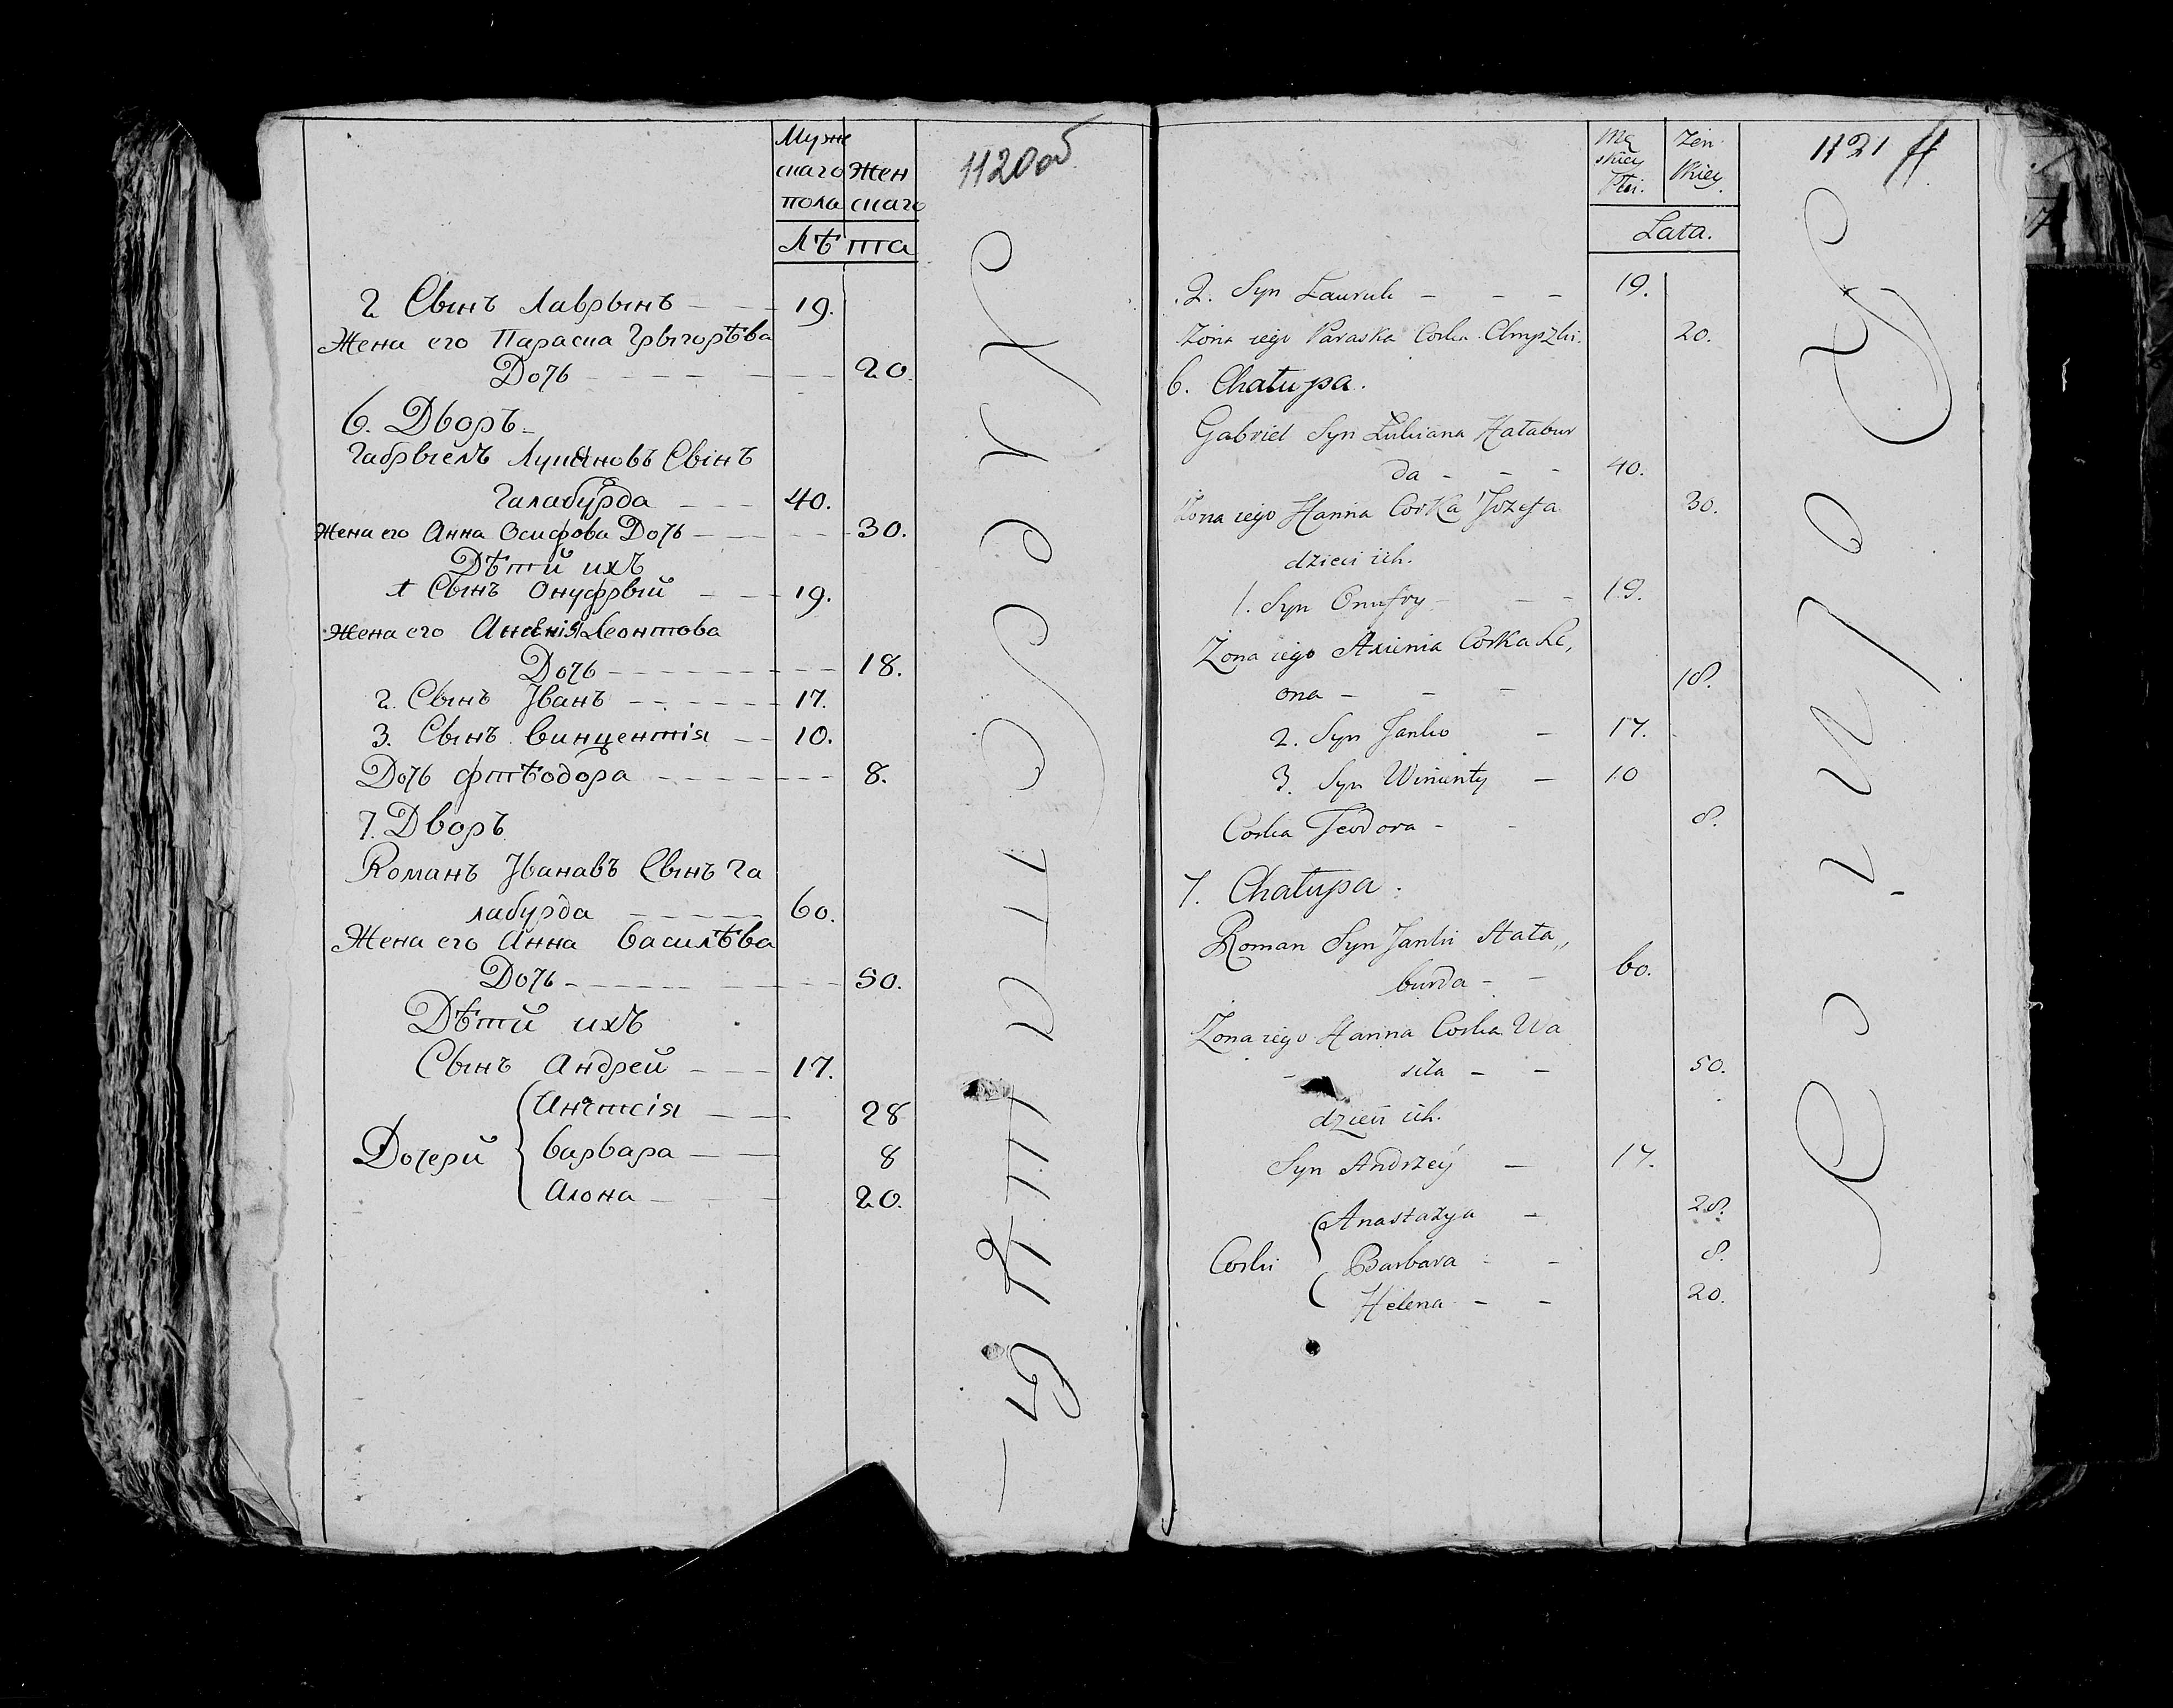 Муже
скаго Жен
пола скаго
Лѣта
1120об
2 Сынъ Лаврынъ 19.
Жена его Параска Грыгорѣва
Дочь 20.
6. Дворъ
Габрыелъ Лукяновъ Сынъ
Галабурда 40.
Жена его Анна Осифова Дочь 30.
Дѣтй ихъ
1 Сынъ Онуфрый 19.
Жена его Ансения Леонтова
Дочь 18.
2. Сынъ Jванъ 17.
3. Сынъ Винцентiя 10.
Дочь Фтѣодора 8.
7. Дворъ
Романъ Jванавъ Сынъ Га
лабурда 60.
Жена его Анна Василѣва
Дочь 50.
Дѣтй ихъ
Сынъ Андрей 17.
Анстсiя 28
Дочерй Варвара 8
Алона 20.
Mę
skiey Żeń
Płci. skiey
Lata.
1121
2. Syn Lauruk 19.
Żona iego Paraska Corka 20.
6. Chałupa.
Gabriel Syn Łukiana Hałabur
da 40.
Żona iego Hanna Corka Jozefa 30.
dzieci ich.
1. Syn Onufry 19.
Żona iego Axienia Corka Le,
ona 18.
2. Syn Janko 17.
3. Syn Wincenty 10
Corka Teodora 8.
7. Chałupa.
Roman Syn Janki Hała„
burda 60.
Żona iego Hanna Corka Wa
sila 50.
dzieci ich.
Syn Andrzey 17.
Anastazya 28.
Corki Barbara 8.
Helena 20.